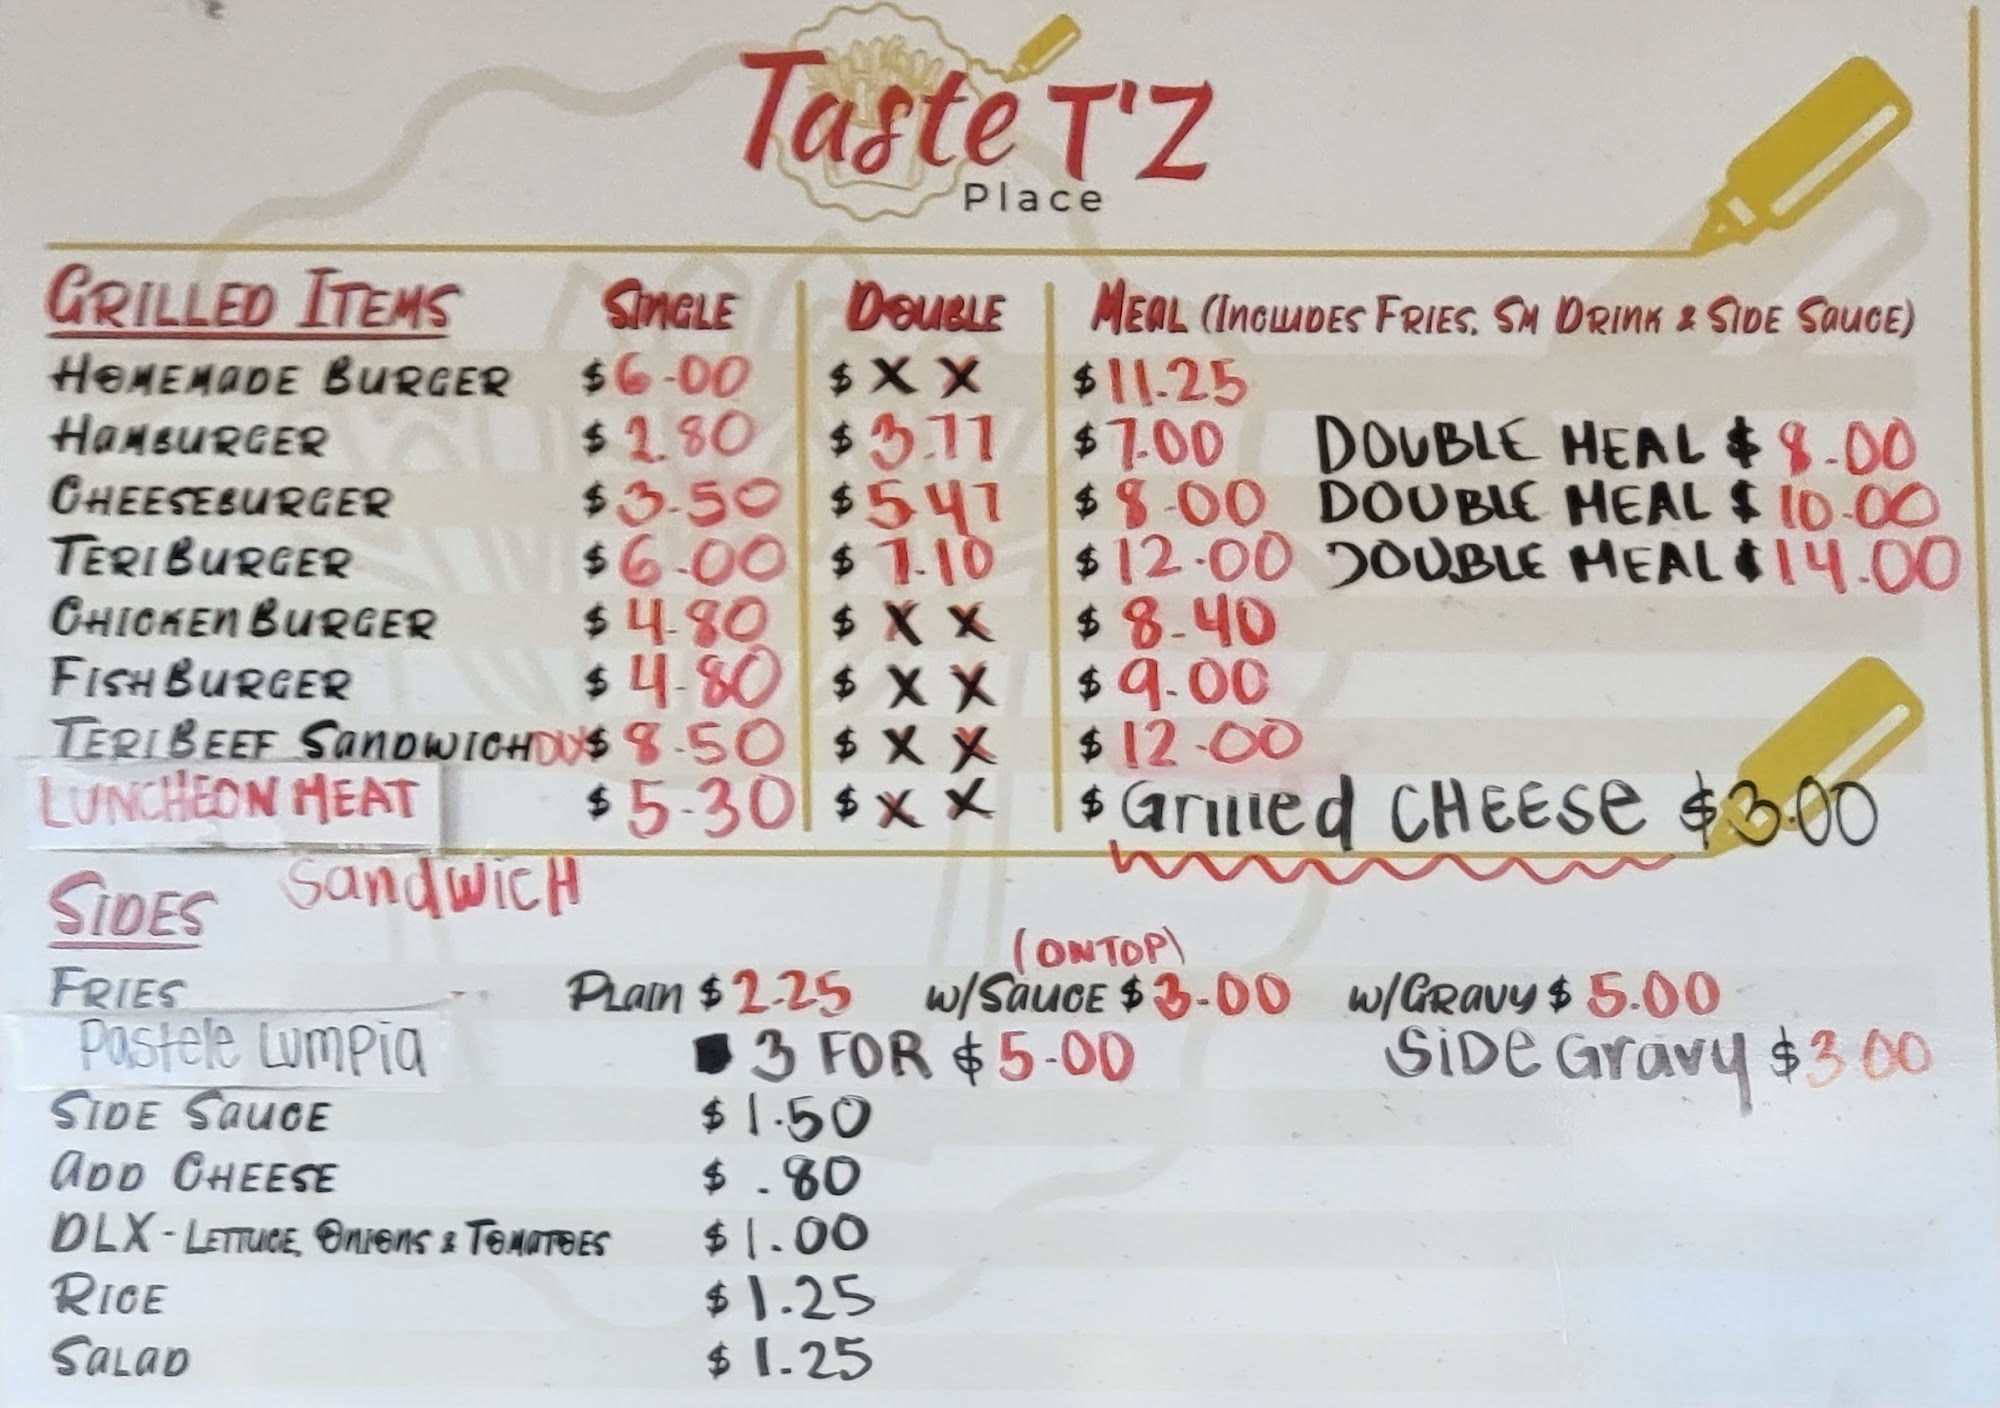 Taste T'Z
Place
GRILLED ITEMS SINGLE DOUBLE MEAL (INCLUDES FRIES, SM DRINK & SIDE SAUCE)
HOMEMADE BURGER $6.00 $ X X $11.25
HAMBURGER $2.80 $3.77 $7.00 DOUBLE MEAL $8.00
CHEESEBURGER $3.50 $5.47 $8.00 DOUBLE MEAL $10.00
TERI BURGER $6.00 $7.10 $12.00 DOUBLE MEAL $14.00
CHICKEN BURGER $4.80 $ X X $8.40
FISH BURGER $4.80 $ X X $9.00
TERI BEEF SANDWICH DLX $8.50 $ X X $12.00
LUNCHEON MEAT $5.30 $ X X $ Grilled CHEESE $3.00
SANDWICH
SIDES
(ON TOP)
FRIES PLAIN $2.25 W/SAUCE $3.00 W/GRAVY $5.00
Pastele Lumpia 3 FOR $5.00 SIDE Gravy $3.00
SIDE SAUCE $1.50
ADD CHEESE $.80
DLX - LETTUCE, ONIONS & TOMATOES $1.00
RICE $1.25
SALAD $1.25